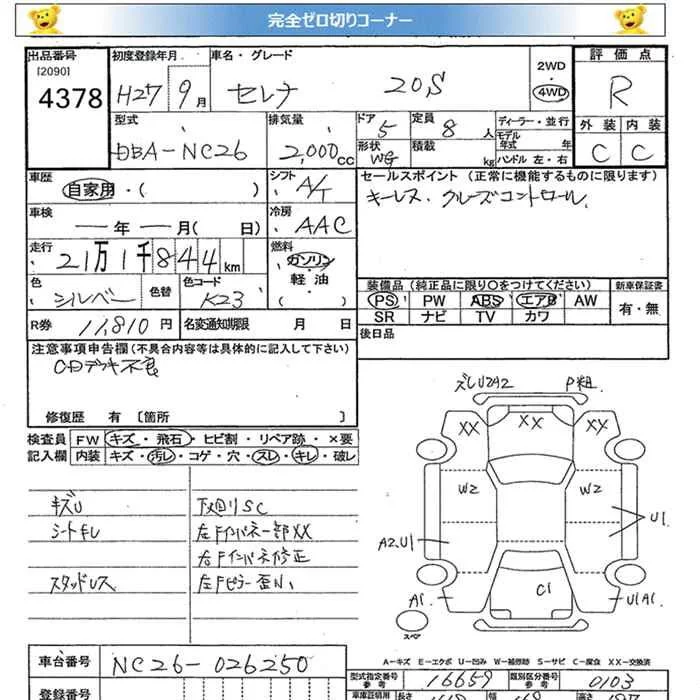 完全ゼロ切りコーナー
出品番号
[2090]
4378
初度登録年月
H27 9月
車名・グレード
セレナ 20S
2WD
4WD
評価点
R
外装 内装
C C
型式
DBA-NC26
排気量
2,000cc
ドア
5
定員
8人
形状
WG
積載
kg
ディーラー・並行
モデル
年式 年
ハンドル 左・右
車歴
自家用・( )
シフト
A/T
セールスポイント (正常に機能するものに限ります)
キーレス. クルーズコントロール
車検
— 年 — 月( 日)
冷房
AAC
走行
21万1千844km
燃料
ガソリン
軽油
色
シルバー
色替
色コード
K23
装備品 (純正品に限り○をつけてください)
新車保証書
PS PW ABS エアB AW
SR ナビ TV カワ
有・無
R券 11,810円
名変通知期限 月 日
後日品
注意事項申告欄 (不具合内容等は具体的に記入して下さい)
CDデッキ不良
修復歴 有 [箇所 ]
検査員
記入欄
FW キズ・飛石・ヒビ割・リペア跡・×要
内装 キズ・汚レ・コゲ・穴・スレ・キレ・破レ
キズU
シートキレ
スタッドレス
下廻りSC
左Fインパネ一部XX
右Fインパネ修正
左Fピラー歪ミ
ズレU2A2 P粗
XX XX XX
W2 W2
A2.U1
U1
C1
A1
U1A1
スペア
A-キズ E-エクボ U-凹み W-補修跡 S-サビ C-腐食 XX-交換済
車台番号
NC26-026250
登録番号
型式指定番号
参考
16659
類別区分番号
参考
0103
車庫証明用
長さ
幅
高さ